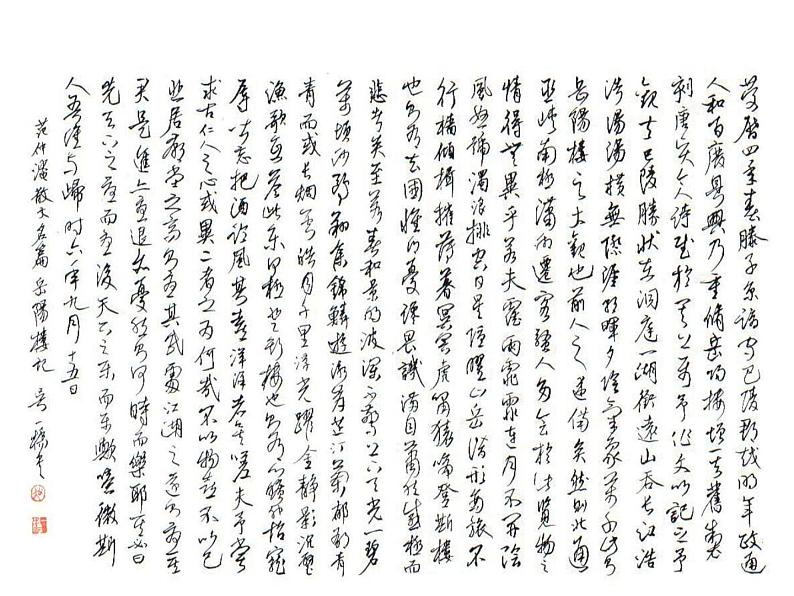 慶曆四年春滕子京謫守巴陵郡越明年政通
人和百廢具興乃重脩岳陽樓增其舊制
刻唐賢今人詩賦於其上屬予作文以記之予
觀夫巴陵勝狀在洞庭一湖銜遠山吞長江浩
浩湯湯橫無際涯朝暉夕陰氣象萬千此則
岳陽樓之大觀也前人之述備矣然則北通
巫峽南極瀟湘遷客騷人多會於此覽物之
情得無異乎若夫霪雨霏霏連月不開陰
風怒號濁浪排空日星隱曜山岳潛形商旅不
行檣傾楫摧薄暮冥冥虎嘯猿啼登斯樓
也則有去國懷鄉憂讒畏譏滿目蕭然感極而
悲者矣至若春和景明波瀾不驚上下天光一碧
萬頃沙鷗翔集錦鱗游泳岸芷汀蘭郁郁青
青而或長烟一空皓月千里浮光躍金靜影沉璧
漁歌互答此樂何極登斯樓也則有心曠神怡寵
辱皆忘把酒臨風其喜洋洋者矣嗟夫予嘗
求古仁人之心或異二者之為何哉不以物喜不以己
悲居廟堂之高則憂其民處江湖之遠則憂其
君是進亦憂退亦憂然則何時而樂耶其必曰
先天下之憂而憂後天下之樂而樂歟噫微斯
人吾誰與歸時六年九月十五日
范仲淹散文名篇岳陽樓記